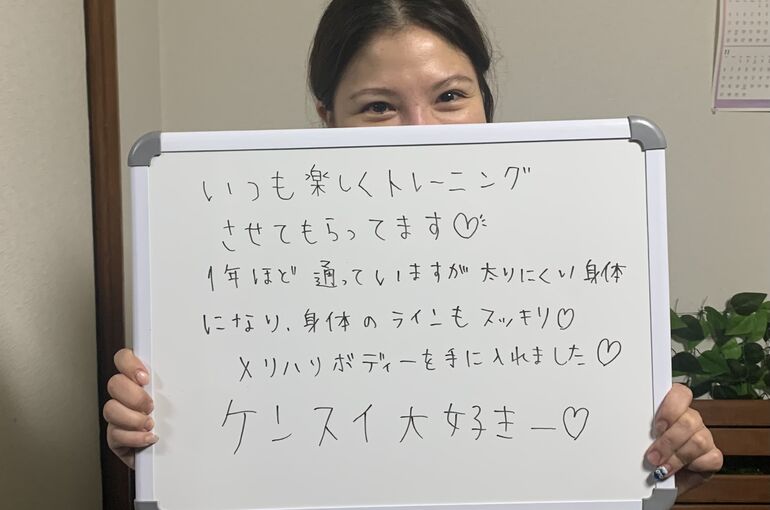 いつも楽しくトレーニング
させてもらってます♡
1年ほど通っていますが太りにくい身体
になり、身体のラインもスッキリ♡
メリハリボディーを手に入れました♡
ケンスイ大好きー♡